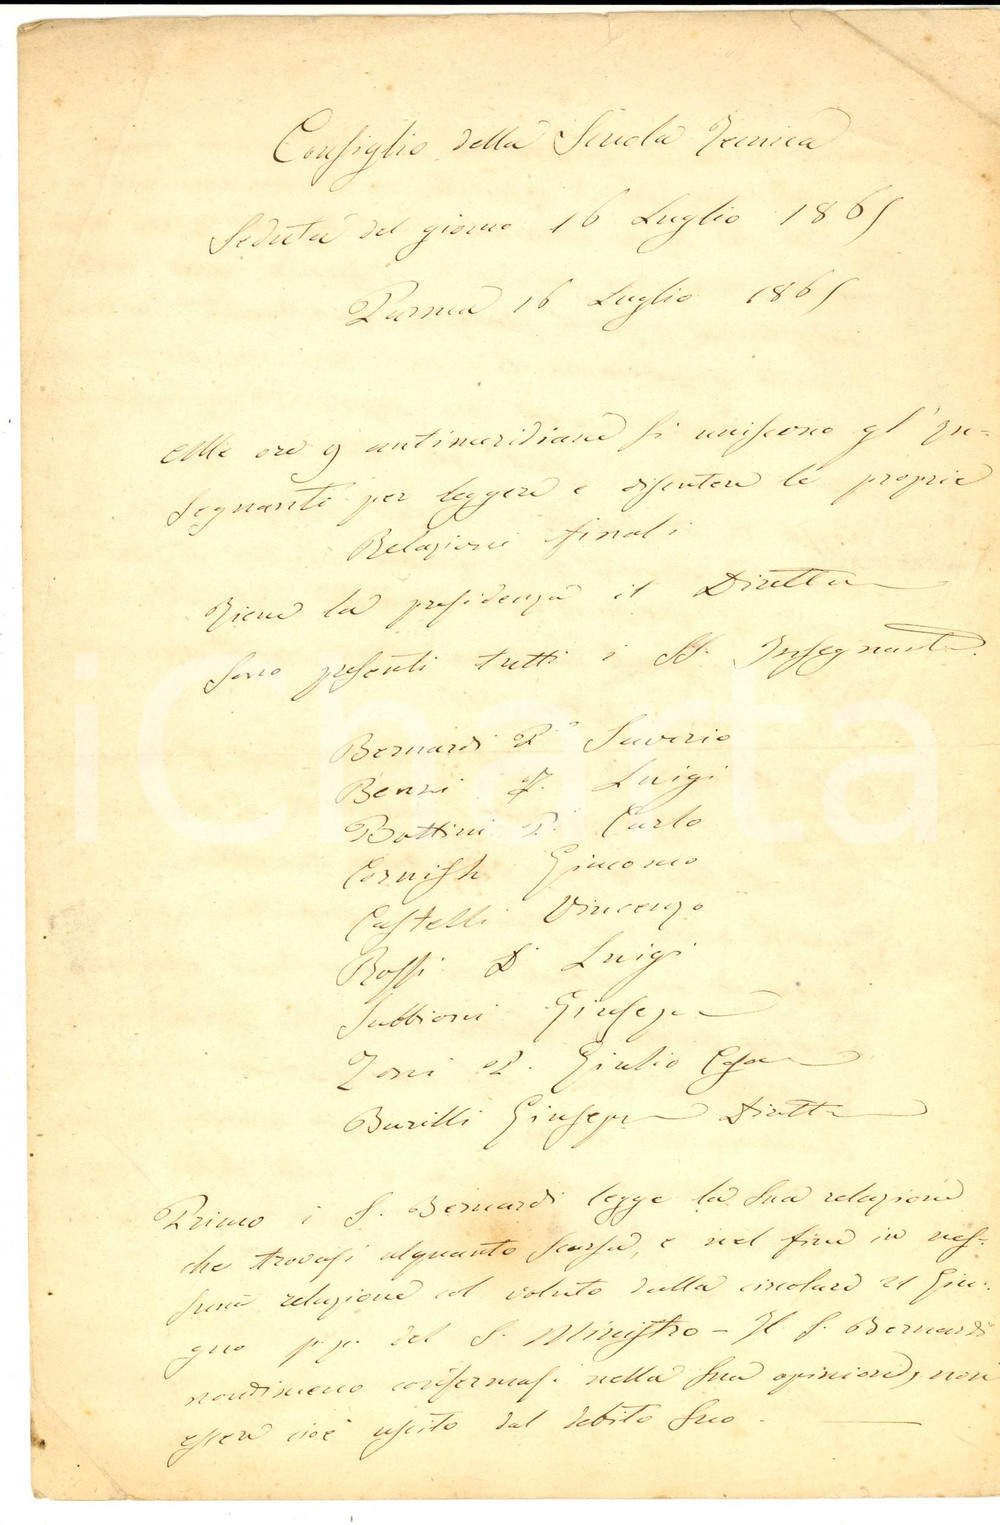 Consiglio della Scuola Tecnica
Seduta del giorno 16 Luglio 1865
Parma 16 Luglio 1865
Alle ore 9 antimeridiane si uniscono gl'In-
segnanti per leggere e discutere le proprie
Relazioni finali
Tiene la presidenza il Direttore
Sono presenti tutti i SS. Insegnanti.
Bernardi P. Saverio
Benzi Luigi
Bottini P. Carlo
Cornish Giacomo
Castelli Vincenzo
Rossi D. Luigi
Subbioni Giuseppe
Toni P. Giulio Cesare
Barilli Giuseppe Direttore
Primo i S. Bernardi legge la sua relazione
che trovasi alquanto scarsa, e nel fine in nes-
suna relazione col voluto dalla circolare 21 Giu-
gno p.p. del S. Ministro – Il S. Bernardi
nondimeno confermasi nella sua opinione, non
essere cioè uscito dal debito suo.
iCharta